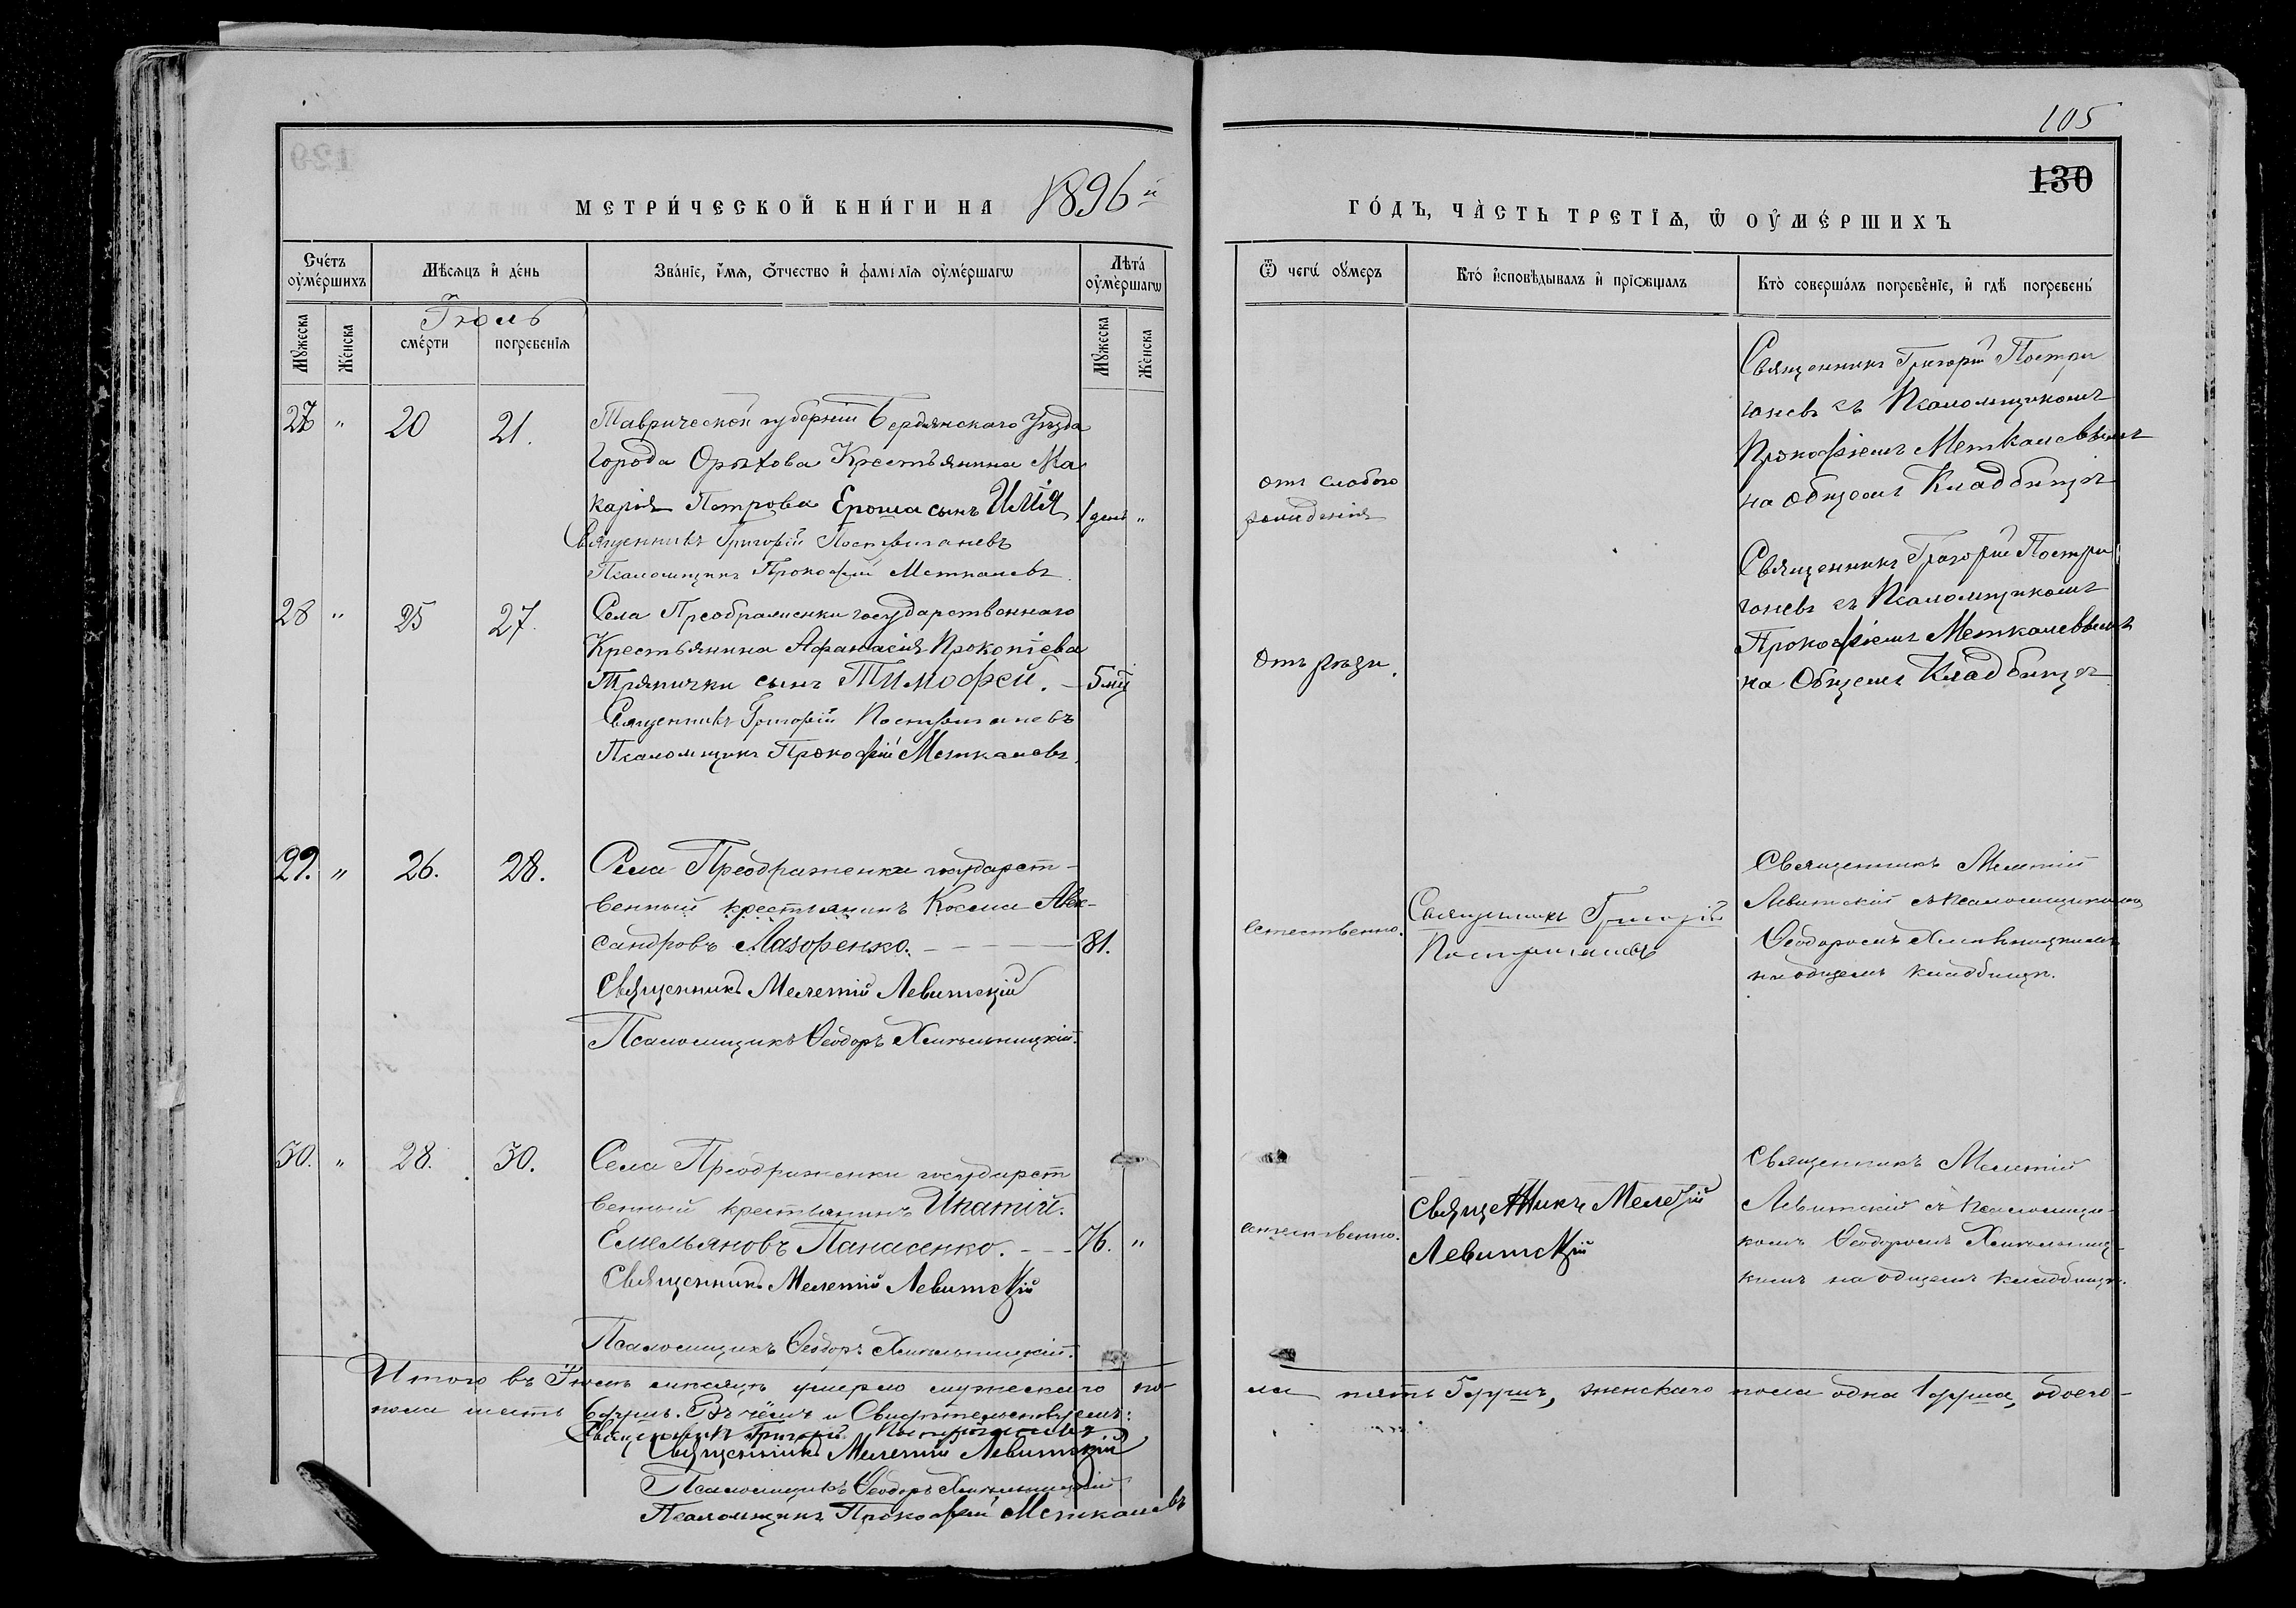 105
130
МЕТРИ́ЧЕСКОЙ КНИ́ГИ НА 1896й
ГО́ДЪ, ЧА̀СТЬ ТРЕТІѦ, Ѿ ОУ҆МЕ́РШИХЪ
Сче́тъ оу҆ме́ршихъ
Мѣсяцъ и҆ де́нь
Зва́нїе, и҆́мѧ, ѻ҆́тчество и҆ фамі́лїѧ оу҆ме́ршагѡ
Лѣта́ оу҆ме́ршагѡ
Ѿ чегѡ̀ оу҆́меръ
Кто̀ и҆сповѣ́дывалъ и҆ прїѻбща́лъ
Кто̀ соверша́лъ погребе́нїе, и҆ гдѣ̀ погребены̀
Мꙋ́жеска
Же́нска
Іюль
сме́рти
погребе́нїѧ
Мꙋ́жеска
Же́нска
27 " 20 21.
Таврической губерніи Бердянскаго Уѣзда
города Орѣхова Крестьянина Ма-
карія Петрова Ероша сынъ Илія 1 день "
Священникъ Григорій Постригачевъ
Псаломщикъ Прокофій Меткалевъ
отъ слабого
рожденія
Священникъ Григорій Постри
гачевъ съ Псаломщикомъ
Прокофіемъ Меткалевымъ
на общемъ Кладбищѣ
28 " 25 27.
Села Преображенки государственнаго
Крестьянина Афанасія Прокопіева
Тряпички сынъ Тимофей. — 5 мц
Священникъ Григорій Постригачевъ
Псаломщикъ Прокофій Меткалевъ.
Отъ рѣзи.
Священникъ Григорій Постри
гачевъ съ Псаломщикомъ
Прокофіемъ Меткалевымъ
на Общемъ Кладбищѣ
29. " 26. 28.
Села Преображенки государст-
венный крестьянинъ Косма Алек-
сандровъ Лазоренко. — 81.
Священникъ Мелетій Левитскій
Псаломщикъ Ѳеодоръ Хмѣльницкій.
Естественно.
Священникъ Григорій
Постригачевъ
Священникъ Мелетій
Левитскій съ псаломщикомъ
Ѳеодоромъ Хмѣльницкимъ
на общемъ кладбищѣ.
30. " 28. 30.
Села Преображенки государст
венный крестьянинъ Ипатій.
Емельяновъ Панасенко. — 76. "
Священникъ Мелетій Левитскій
Псаломщикъ Ѳеодоръ Хмѣльницкій.
естественно.
Священникъ Мелетій
Левитскій
Священникъ Мелетій
Левитскій съ псаломщи-
комъ Ѳеодоромъ Хмѣльниц-
кимъ на общемъ кладбищѣ.
Итого въ Іюлѣ мѣсяцѣ умерло мужескаго по-
ла пять 5 душъ, женскаго пола одна 1 душа, обоего-
пола шесть 6 душъ. Въ чёмъ и Свидѣтельствуемъ:
Священникъ Григорій Постригачевъ
Священникъ Мелетій Левитскій
Псаломщикъ Ѳеодоръ Хмѣльницкій
Псаломщикъ Прокофій Меткалевъ